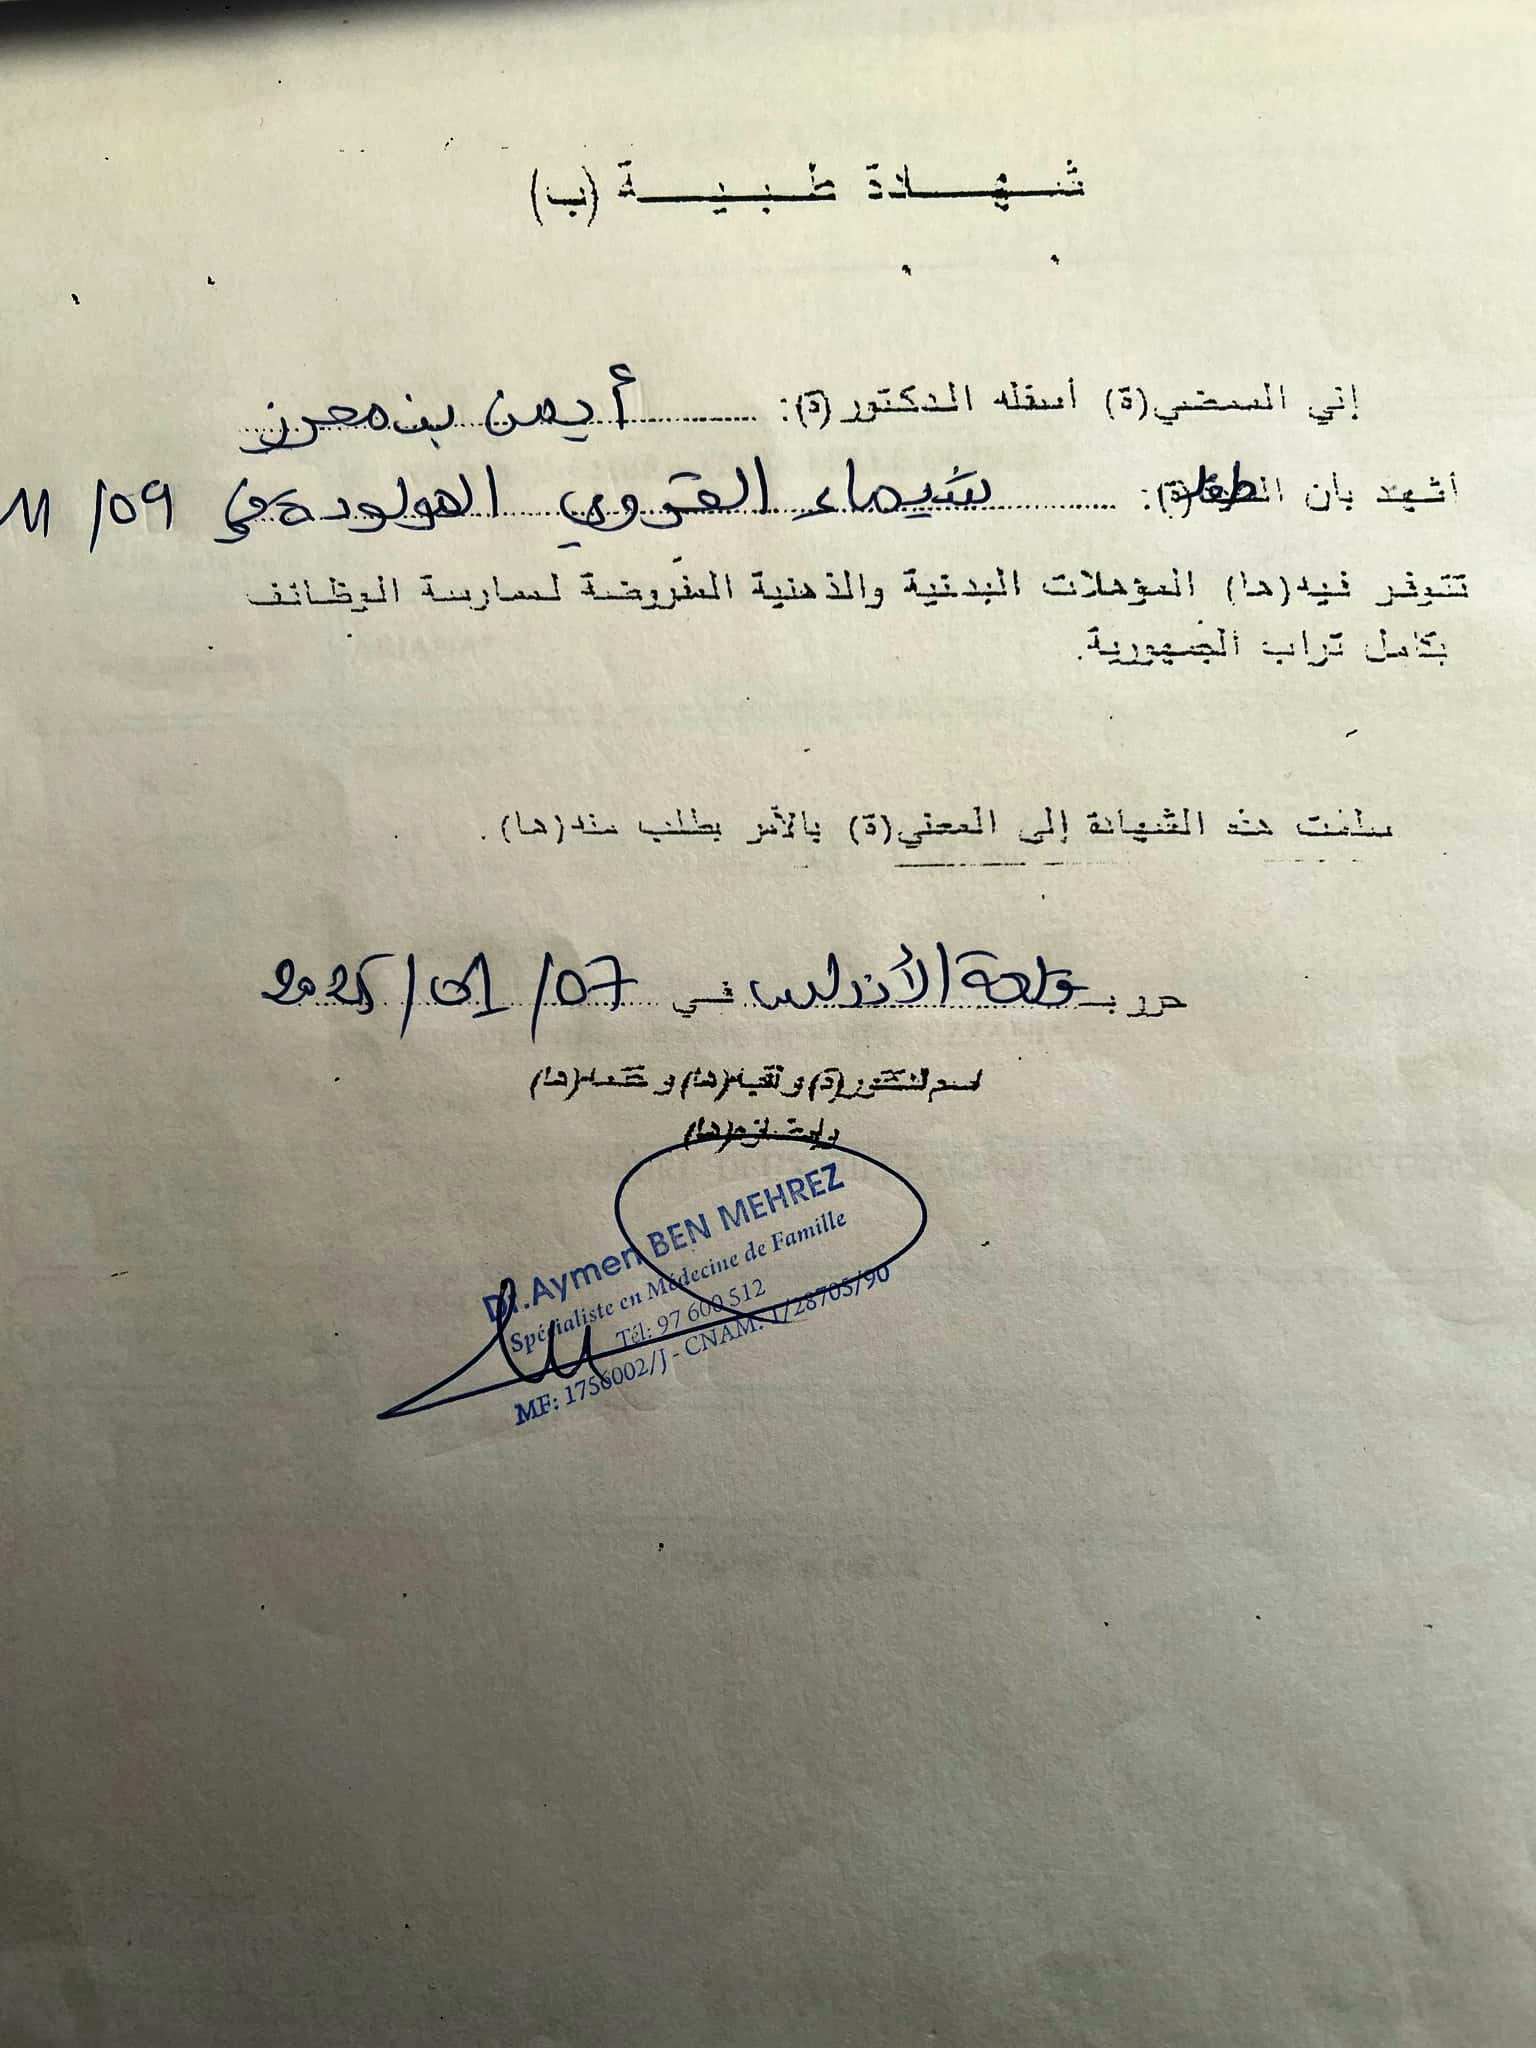 شهادة طبية (ب)
إني الممضي(ة) أسفله الدكتور(ة): أيمن بن محرز
أشهد بأن الطفلة(ة): شيماء القروي المولودة في 09/ 11
تتوفر فيه(ها) المؤهلات البدنية والذهنية المفروضة لممارسة الوظائف
بكامل تراب الجمهورية.
سلمت هذه الشهادة إلى المعني(ة) بالأمر بطلب منه(ها).
حرر بـ واحة الأندلس في 07/ 01/ 2025
اسم الدكتور(ة) ولقبه(ها) و ختمه(ها)
Dr.Aymen BEN MEHREZ
Spécialiste en Médecine de Famille
Tél: 97 600 512
MF: 1756002/J - CNAM: 1/28705/90